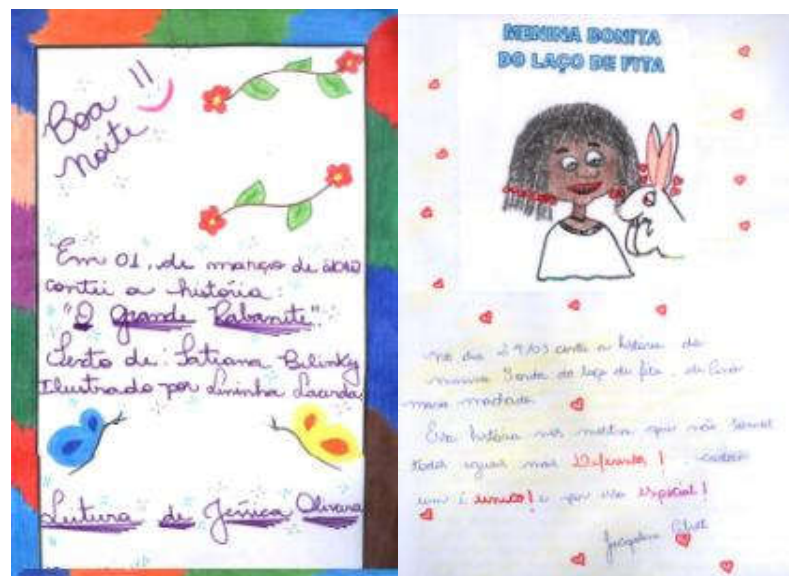 Boa !!
noite
Em 01, de março de 2010
contei a história:
"O Grande Rabanete".
Texto de: Tatiana Belinky
Ilustrado por Lininha Lacerda
Leitura de Jéssica Olivara
MENINA BONITA
DO LAÇO DE FITA
no dia 29/03 contei a história da
menina bonita do laço de fita, de
maria machado
Esta história nos mostra que não somos
todos iguais mas Diferentes! cada
um é único! e por isso especial!